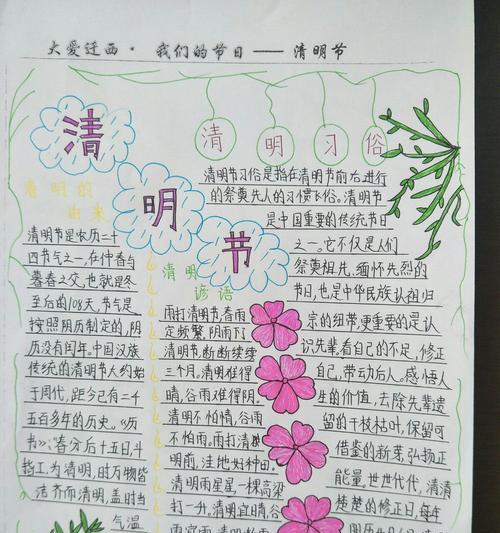 大爱迁西·我们的节日——清明节
清
明
节
清明习俗
清明节习俗是指在清明节前后进行
的祭奠先人的习惯飞俗。清明节
是中国重要的传统节日
之一。它不仅是人们
祭奠祖先,缅怀先烈的
节日,也是中华民族认祖归
宗的纽带,更重要的是认
识先辈看自己的不足,修正
自己,带动后人。感悟人
生的价值,去除先辈遗
留的干枝枯叶,保留可
借鉴的新芽,弘扬正
能量。世世代代,清清
楚楚的修正日,每年
清明的
由来
清明节是农历二十
四节气之一,在仲春与
暮春之交,也就是冬
至后的108天,节气是
按照阴历制定的,阴
历没有闰年。中国汉族
传统的清明节大约始
于周代,距今已有二千
五百多年的历史。《历
书》:春分后十五日,斗
指工,为清明,时万物皆
洁齐而清明,盖时当
气温
清明
谚语
雨打清明节,春雨
定频繁,阴雨下
清明节,断断续续
三个月。清明难得
晴,谷雨难得阴。
清明不怕晴,谷雨
不怕雨。雨打清明
明前,洼地好种田。
清明雨星星,一棵高粱
打一升,清明宜晴,谷